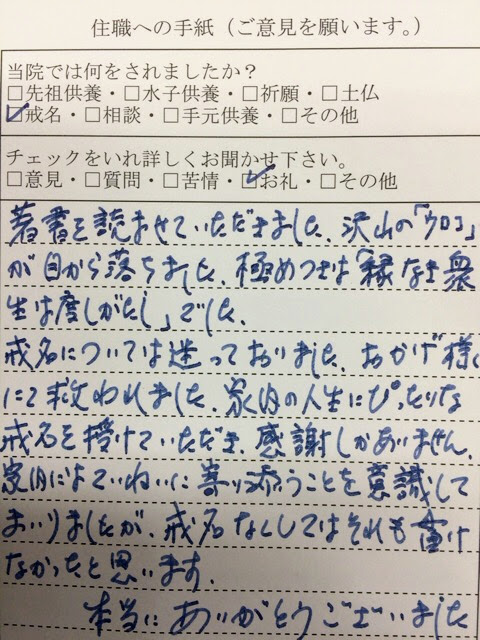 住職への手紙（ご意見を願います。）
当院では何をされましたか？
□先祖供養・□水子供養・□祈願・□土仏
☑戒名・□相談・□手元供養・□その他
チェックをいれ詳しくお聞かせ下さい。
□意見・□質問・□苦情・☑お礼・□その他
著書を読ませていただきました、沢山の「ウロコ」
が目から落ちました、極めつきは「縁なき衆
生は度しがたし」でした、
戒名については迷っておりました、おかげ様
にて救われました、家内の人生にぴったりな
戒名を授けていただき、感謝しかありません、
ていねいに寄り添うことを意識して
まいりましたが、戒名なくしてはそれも
なかったと思います、
本当にありがとうございました